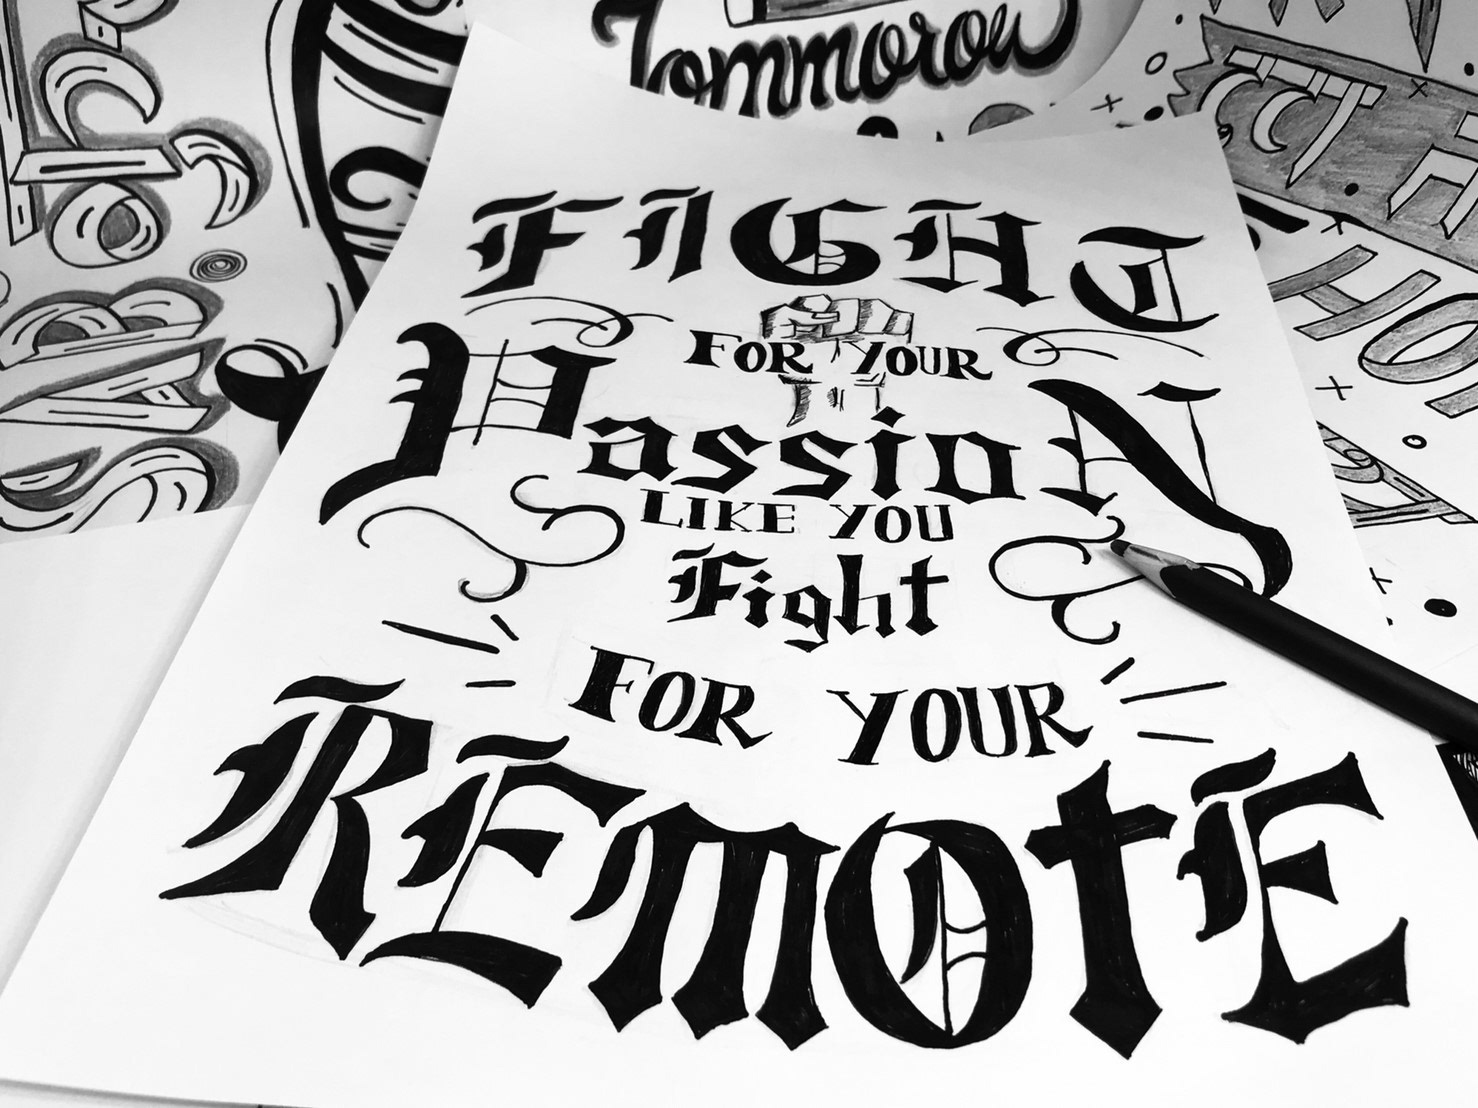 Tommorow
FIGHT
FOR YOUR
PassioN
LIKE YOU
Fight
FOR YOUR
REmOtE